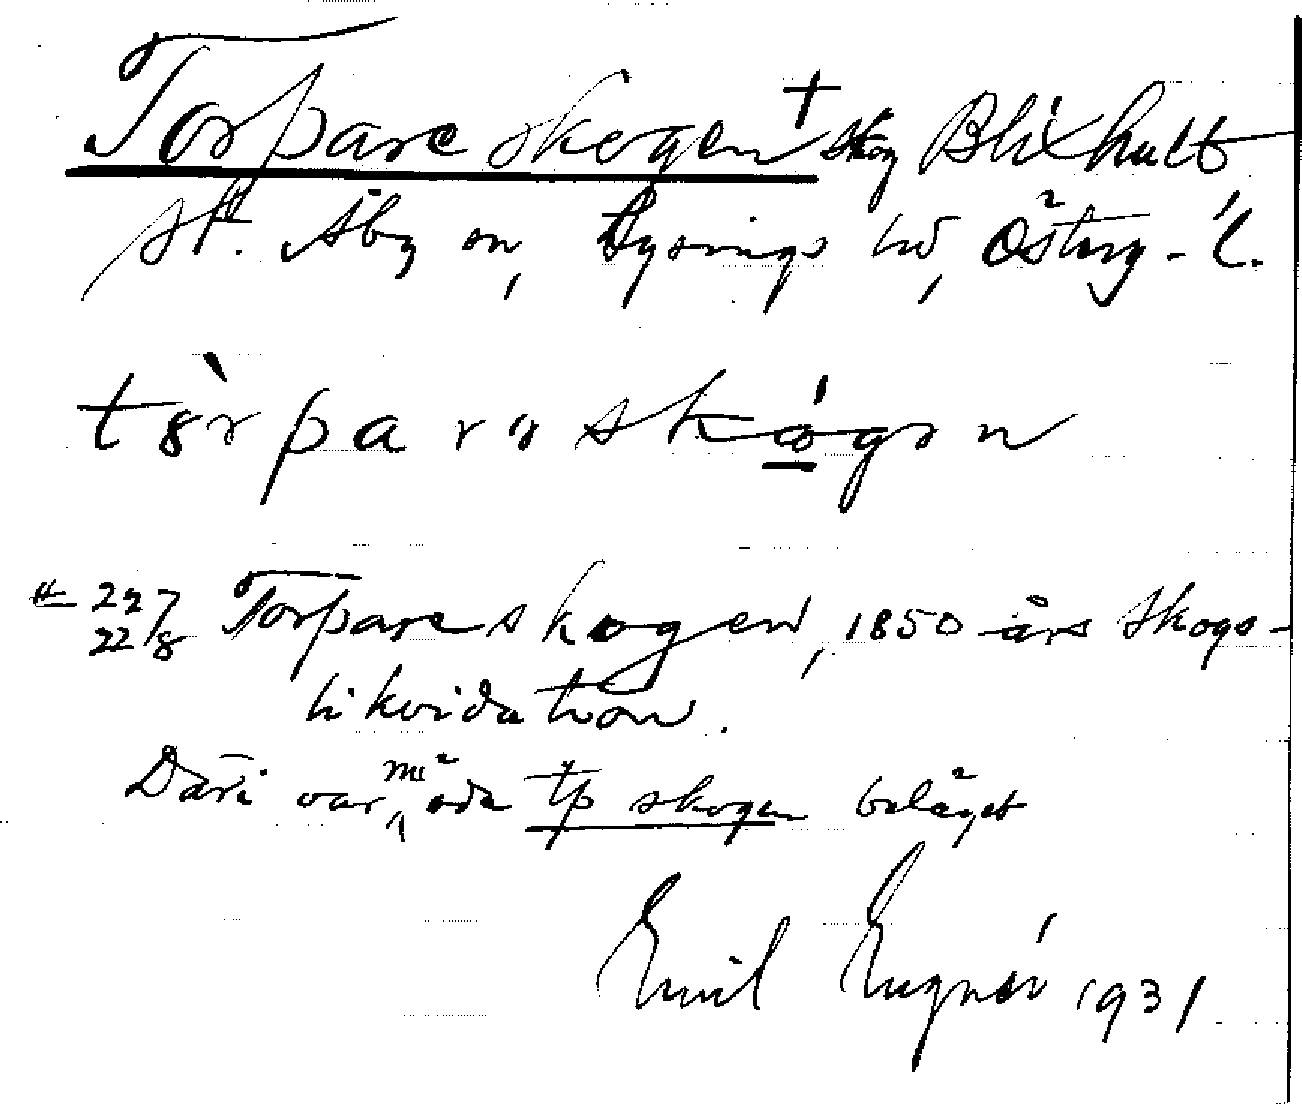 Torpareskogen + skog Blixhult
St. Åby sn, Lysings hd, Österg-l.
tòrparəskógən
227 Torpareskogen, 1850 års skogs-
22/8
likvidation.
Däri var öda tp skogen beläget
Emil Eugnér 1931